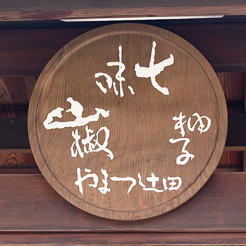 七味
山椒
柚子
やまつ辻田